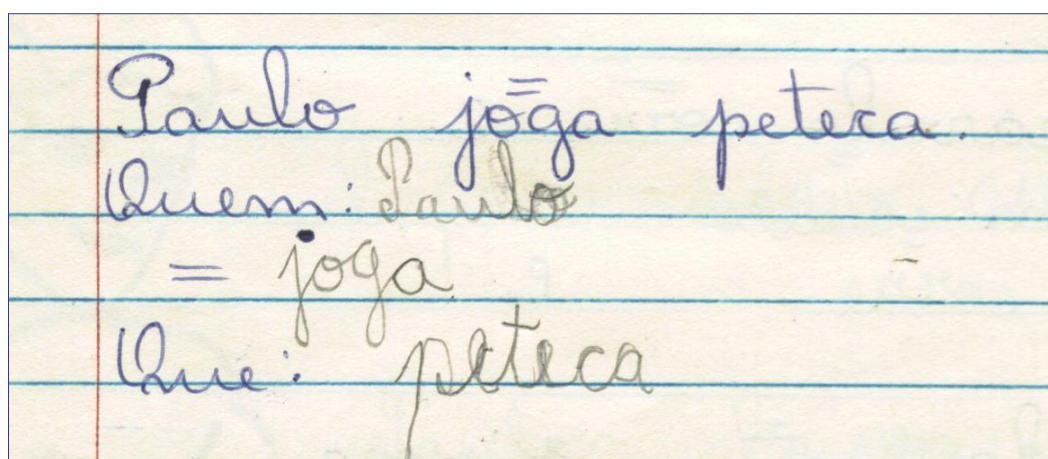 Paulo joga peteca.
Quem: Paulo
= joga
Que: peteca